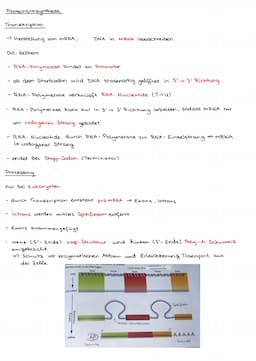 Proteinbiosynthese
Transkription
→ Herstellung von mRNA, DNA in mRNA überschreiben
Ort: Zellkern
- RNA-Polymerase bindet an Promotor
- ab dem Startcodon wird DNA stückweise geöffnet in 3' → 5' Richtung
- RNA-Polymerase verknüpft RNA-Nucleotide (T→U)
- RNA-Polymerase kann nur in 5' → 3' Richtung arbeiten, sodass mRNA nur
am codogenen Strang gebildet
- RNA-Nucleotide durch RNA-Polymerase zu RNA-Einzelstrang → mRNA
codogener Strang
- endet bei Stopp-Codon (Terminator)
Processing
nur bei Eukaryoten
- durch Transkription entsteht prä mRNA → Exons, Introns
- Introns werden mittels Spleißosom entfernt
- Exons zusammengefügt
- vorne (5'-Ende) cap-Struktur und hinten (3'-Ende) Poly-A-Schwanz
angebracht
⇒ Schutz vor enzymatischen Abbau und Erleichterung Transport aus
der Zelle